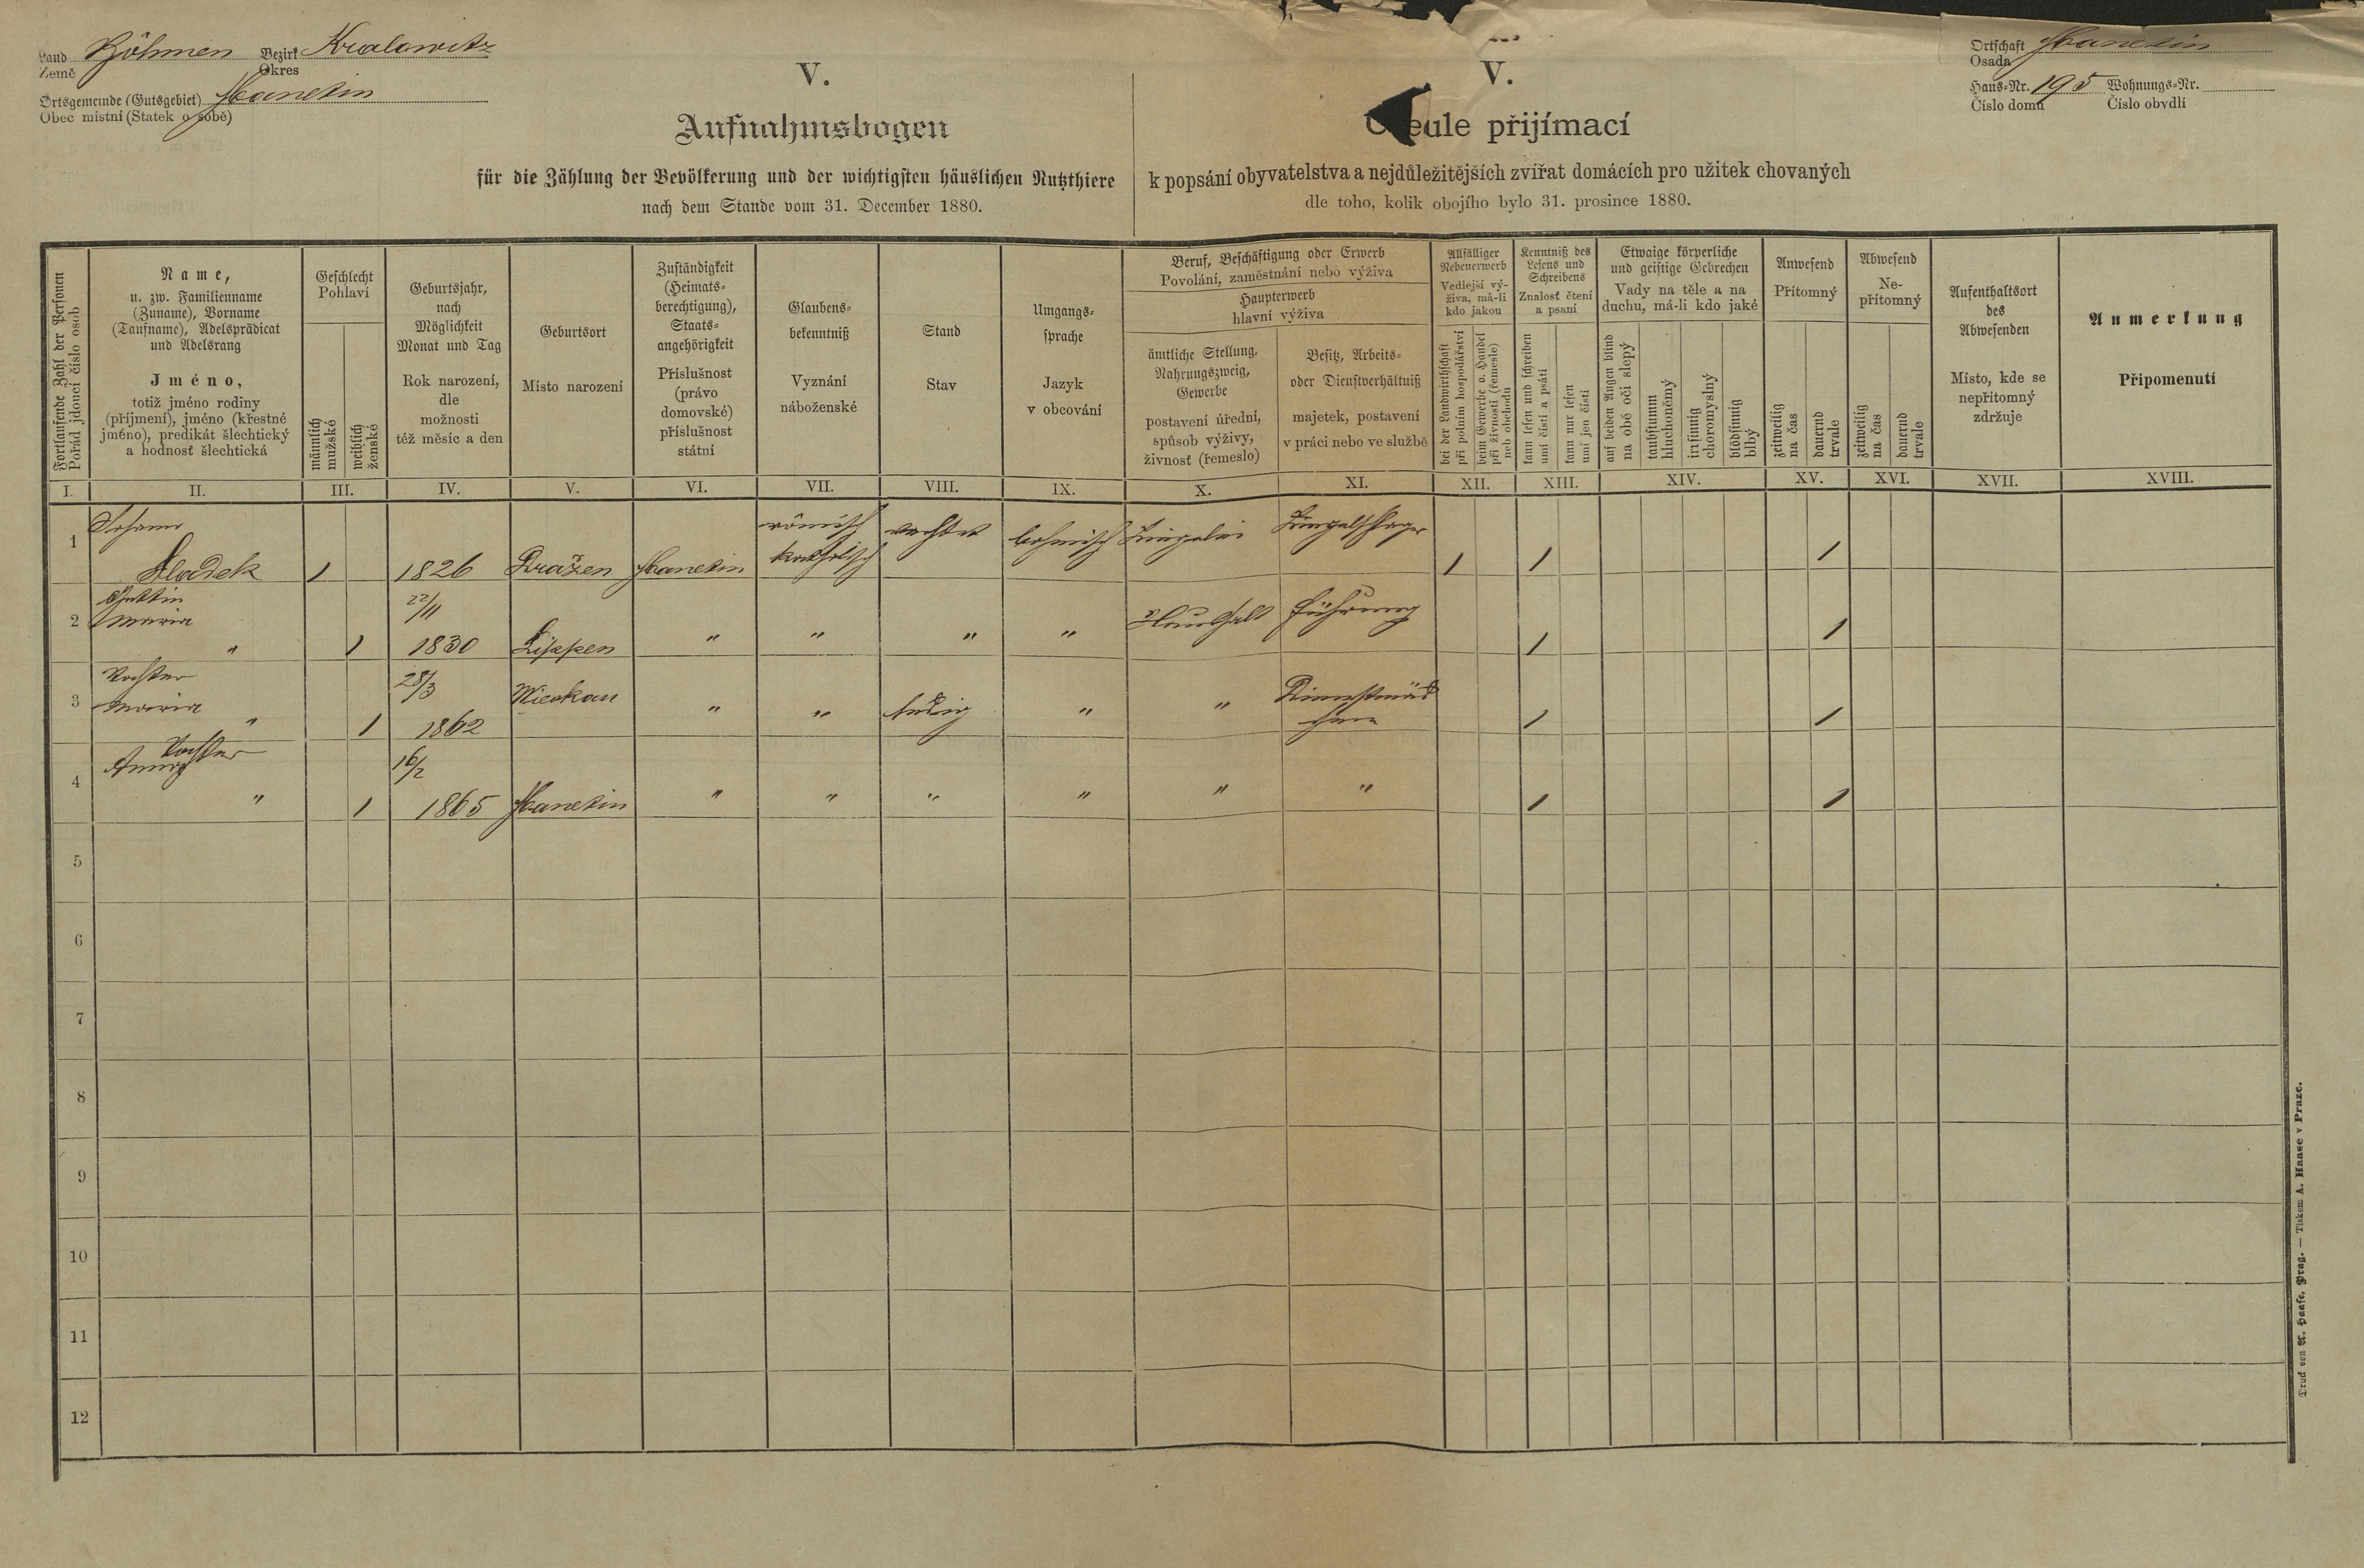 Land Böhmen Bezirk Kralowitz
Země Okres
Ortsgemeinde (Gutsgebiet) Manetin
Obec místní (Statek o sobě)
Ortschaft Manetin
Osada
Haus-Nr. 195 Wohnungs-Nr.
Číslo domu Číslo obydlí
V.
Aufnahmsbogen
für die Zählung der Bevölkerung und der wichtigsten häuslichen Nutzthiere
nach dem Stande vom 31. December 1880.
V.
přijímací
k popsání obyvatelstva a nejdůležitějších zvířat domácích pro užitek chovaných
dle toho, kolik obojího bylo 31. prosince 1880.
Fortlaufende Zahl der Personen
Pořád jdoucí číslo osob
Name,
u. zw. Familienname
(Zuname), Vorname
(Taufname), Adelsprädicat
und Adelsrang
Jméno,
totiž jméno rodiny
(příjmení), jméno (křestné
jméno), predikát šlechtický
a hodnosť šlechtická
Geschlecht
Pohlaví
männlich
mužské
weiblich
ženské
Geburtsjahr,
nach
Möglichkeit
Monat und Tag
Rok narození,
dle
možnosti
též měsíc a den
Geburtsort
Místo narození
Zuständigkeit
(Heimats-
berechtigung),
Staats-
angehörigkeit
Příslušnost
(právo
domovské)
příslušnost
státní
Glaubens-
bekenntniß
Vyznání
náboženské
Stand
Stav
Umgangs-
sprache
Jazyk
v obcování
Beruf, Beschäftigung oder Erwerb
Povolání, zaměstnání nebo výživa
Haupterwerb
hlavní výživa
ämtliche Stellung,
Nahrungszweig,
Gewerbe
postavení úřední,
spůsob výživy,
živnosť (řemeslo)
Besitz, Arbeits-
oder Dienstverhältniß
majetek, postavení
v práci nebo ve službě
Allfälliger
Nebenerwerb
Vedlejší vý-
živa, má-li
kdo jakou
bei der Landwirthschaft
při polním hospodářství
beim Gewerbe o. Handel
při živnosti (řemesle)
neb obchodu
Kenntniß des
Lesens und
Schreibens
Znalosť čtení
a psaní
kann lesen und schreiben
umí čísti a psáti
kann nur lesen
umí jen čísti
Etwaige körperliche
und geistige Gebrechen
Vady na těle a na
duchu, má-li kdo jaké
auf beiden Augen blind
na obě oči slepý
taubstumm
hluchoněmý
irrsinnig
choromyslný
blödsinnig
blbý
Anwesend
Přítomný
zeitweilig
na čas
dauernd
trvale
Abwesend
Ne-
přítomný
zeitweilig
na čas
dauernd
trvale
Aufenthaltsort
des
Abwesenden
Místo, kde se
nepřítomný
zdržuje
Anmerkung
Připomenutí
I. II. III. IV. V. VI. VII. VIII. IX. X. XI. XII. XIII. XIV. XV. XVI. XVII. XVIII.
Johann römisch böhmisch
1 Sladek 1 1826 Dražen Manetin katholisch 1 1 1
Gattin 22/11
2 Maria Haushalt führung
" 1 1830 Lippen " " " " 1 1
Tochter 28/3 Dienstmäd
3 Maria
" 1 1862 " " ledig " " chen 1 1
Tochter
Anna 16/2
4 " 1 1865 Manetin " " " " " " 1 1
5
6
7
8
9
10
11
12
Druck von A. Haase, Prag. — Tiskem A. Haase v Praze.